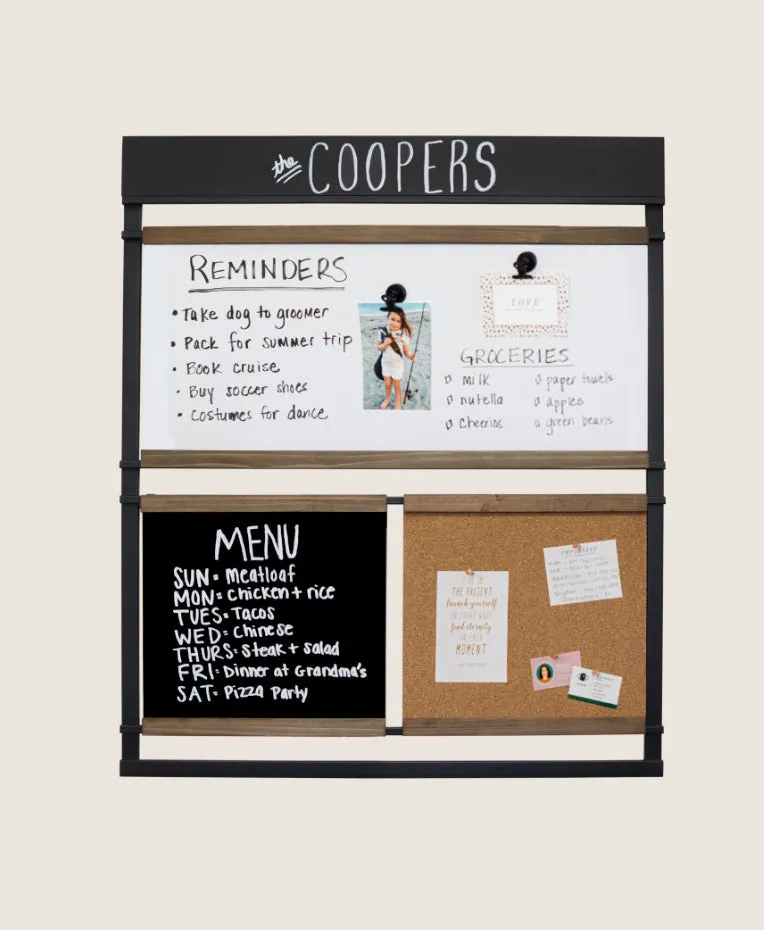 the COOPERS
REMINDERS
• Take dog to groomer
• Pack for summer trip
• Book cruise
• Buy soccer shoes
• Costumes for dance
LOVE
GROCERIES
milk
nutella
Cheerios
paper towels
apples
green beans
MENU
SUN= Meatloaf
MON= Chicken + rice
TUES= Tacos
WED= Chinese
THURS= Steak + Salad
FRI= Dinner at Grandma's
SAT= Pizza Party
THE PRESENT
launch yourself
find eternity
IN EACH
MOMENT